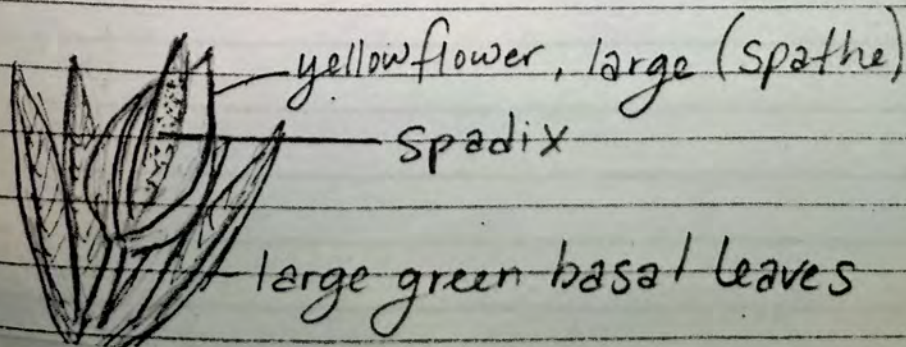 yellow flower, large (spathe)
spadix
large green basal leaves